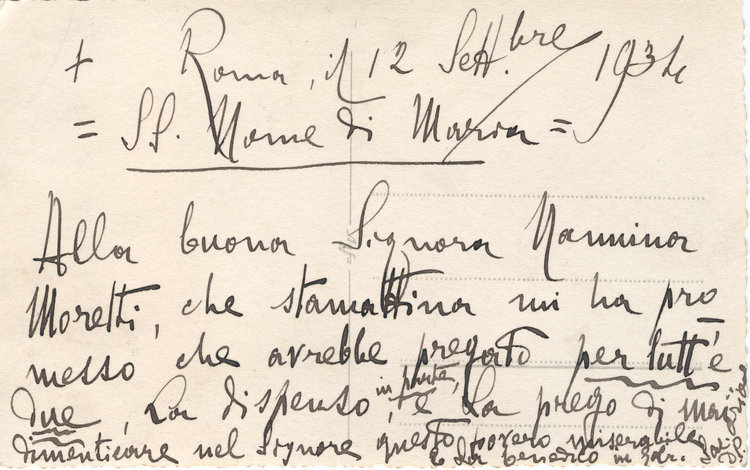 + Roma, il 12 Sett.bre 1934
= SS. Nome di Maria =
Alla buona Signora Nannina
Moretti, che stamattina mi ha pro
messo che avrebbe pregato per tutt'e
due, La dispenso, in parte, e La prego di mai
dimenticare nel Signore questo povero miserabile
e La benedico in